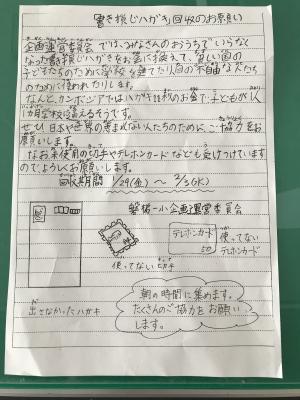 書き損じハガキ回収のお願い
企画運営委員会では、みなさんのおうちでいらなく
なった書き損じハガキをお金に換えて、貧しい国の
子どもたちのために学校を建てたり目の不自由な人たち
のために使われたりします。
なんと、カンボジアではハガキ11枚のお金で子どもが1人
1カ月学校に通えるそうです。
ぜひ日本や世界の恵まれない人たちのために、ご協力をお
願いします。
なお未使用の切手やテレホンカードなども受けつけています
ので、よろしくお願いします。
回収期間 1/29(金)～2/3(水)
磐梯一小企画運営委員会
テレホンカード
50
使ってない
テレホンカード
使ってない切手
出さなかったハガキ
朝の時間に集めます。
たくさんのご協力をお願い
します。